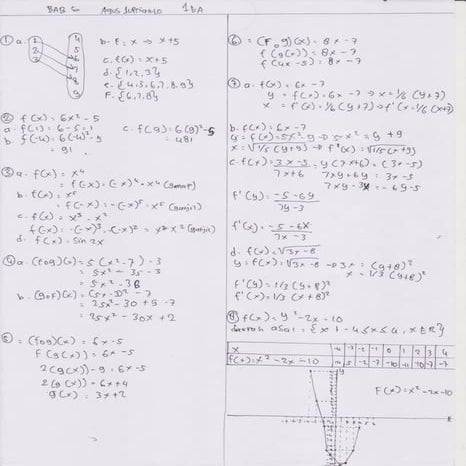 BAB 6 AGUS SUPRIANTO 1 DA
① a.
1
2
3
4
5
6
7
8
9
b. F: x → x+5
c. f(x) = x+5
d. {1,2,3}
e. {4,5,6,7,8,9}
F. {6,7,8}
② f(x) = 6x² - 5
a. f(1) = 6-5 = 1
b. f(-4) = 6(-4)² - 5
= 91
c. f(9) = 6(9)² - 5
= 481
③ a. f(x) = x⁴
= f(-x) = (-x)⁴ = x⁴ (genap)
b. f(x) = x⁵
= f(-x) = -(-x)⁵ = x⁵ (ganjil)
c. f(x) = x³ - x²
f(-x) = -(-x)³ - (-x)² = x³ x² (ganjil)
d. f(x) = sin 2x
④ a. (fog)(x) = 5(x²-7) - 3
= 5x² - 35 - 3
= 5x² - 38
b. (gof)(x) = (5x-3)² - 7
= 25x² - 30 + 9 - 7
= 25x² - 30x + 2
⑤ = (fog)(x) = 6x-5
f(g(x)) = 6x-5
2(g(x)) - 9 = 6x-5
2(g(x)) = 6x+4
g(x) = 3x+2
⑥ = (f o g)(x) = 8x-7
f(g(x)) = 8x-7
f(4x-5) = 8x-7
⑦ a. f(x) = 6x-7
y = f(x) = 6x-7 → x = 1/6 (y+7)
x = f'(x) = 1/6 (y+7) → f'(x = 1/6 (x+7)
b. f(x) = 6x-7
y = f(x) = 5x²-9 → 5x² = y+9
x = √1/5(y+9) → f'(x) = √1/5(x+9)
c. f(x) = 3x-5 y(7x+6) = (3x-5)
7x+6 7xy+6y = 3x-5
7xy-3x = -6y-5
f'(y) = -5-6y
7y-3
f'(x) = -5-6x
7x-3
d. f(x) = √3x-8
y = f(x) = √3x-8 → 3x = (y+8)²
x = 1/3(y+8)²
f'(y) = 1/3 (y+8)²
f'(x) = 1/3 (x+8)²
⑧ f(x) = y²-2x-10
daerah asal = {x | -4≤x≤4, x∈R}
x -4 -3 -2 -1 0 1 2 3 4
f(x) = x²-2x-10 14 5 -2 -7 -10 -11 -10 -7 -2
F(x) = x²-2x-10